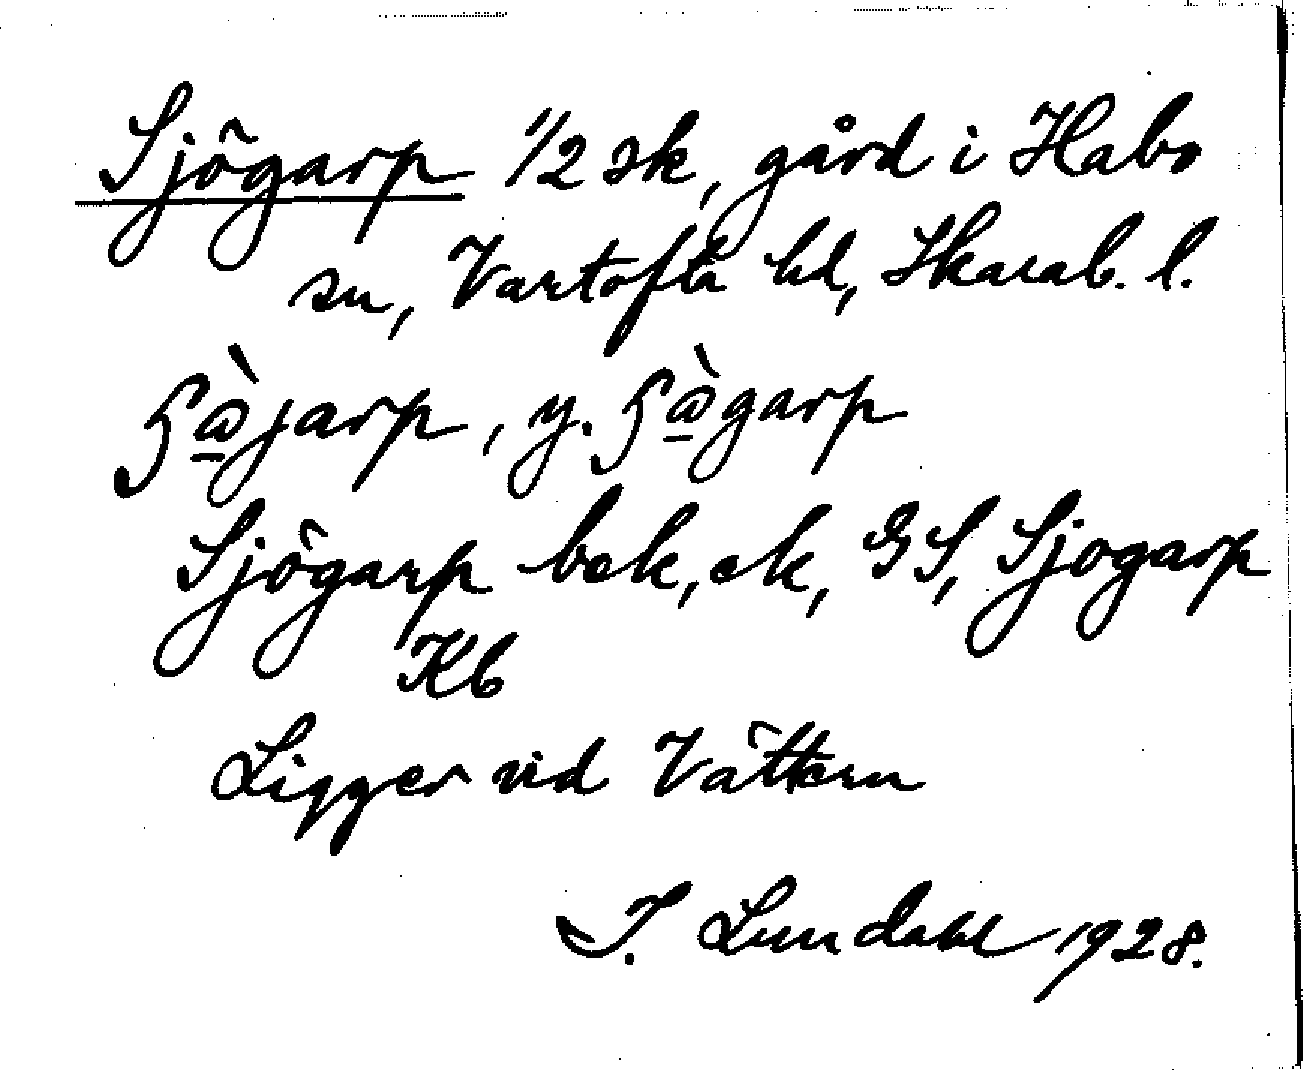 Sjögarp 1/2 sk, gård i Habo
sn, Vartofta hd, Skarab. l.
y.
Sjögarp bek, ek, GS, Sjogarp
Kb
Ligger vid Vättern
I. Lundahl 1928.